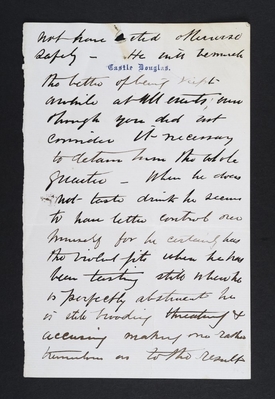 not have acted otherwise
safely – He will be much
Castle Douglas.
the better of being kept
awhile at all events even
though you did not
consider it necessary
to detain him the whole
quarter – When he does
not taste drink he seems
to have better control over
himself for he certainly has
the violent fit when he has
been tasting still when he
is perfectly abstinent he
is still brooding threatening &
accusing making me rather
tremulous as to the results